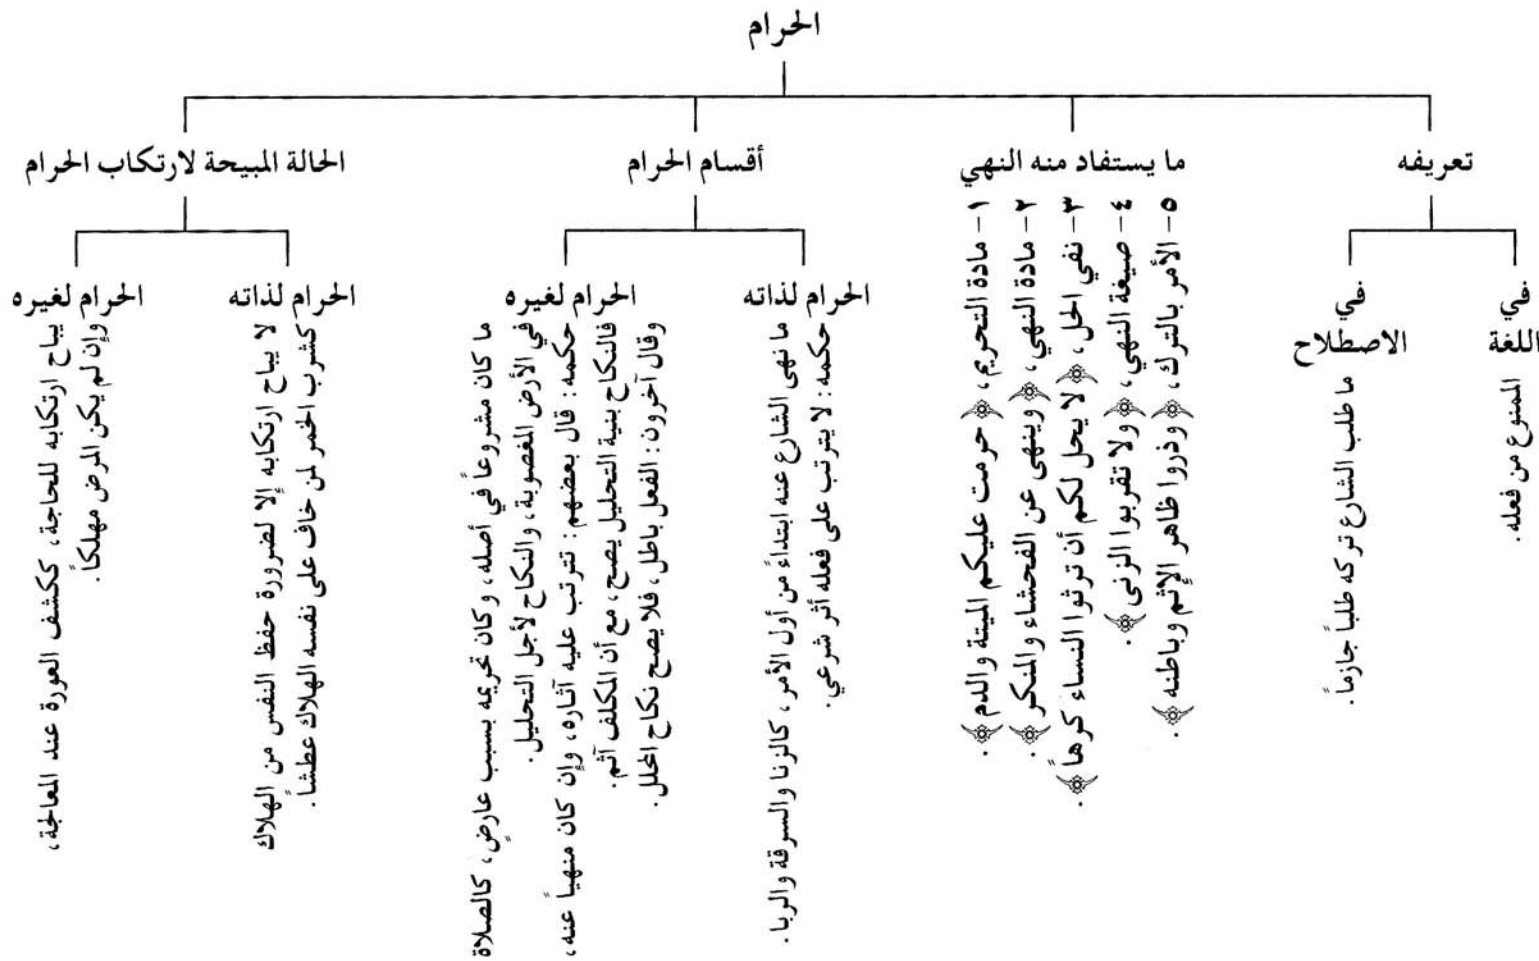 الحرام
تعريفه
في
اللغة
الممنوع من فعله.
في
الاصطلاح
ما طلب الشارع تركه طلباً جازماً.
ما يستفاد منه النهي
١ – مادة التحريم، ﴿حرمت عليكم الميتة والدم﴾.
٢ – مادة النهي، ﴿وينهى عن الفحشاء والمنكر﴾.
٣ – نفي الحل، ﴿لا يحل لكم أن ترثوا النساء كرهاً﴾.
٤ – صيغة النهي، ﴿ولا تقربوا الزنى﴾.
٥ – الأمر بالترك، ﴿وذروا ظاهر الإثم وباطنه﴾.
أقسام الحرام
الحرام لذاته
ما نهى الشارع عنه ابتداءً من أول الأمر، كالزنا والسرقة والربا.
حكمه: لا يترتب على فعله أثر شرعي.
الحرام لغيره
ما كان مشروعاً في أصله، وكان تحريمه بسبب عارضٍ، كالصلاة
في الأرض المغصوبة، والنكاح لأجل التحليل.
حكمه: قال بعضهم: تترتب عليه آثاره، وإن كان منهياً عنه،
فالنكاح بنية التحليل يصح، مع أن المكلف آثم.
وقال آخرون: الفعل باطل، فلا يصح نكاح المحلل.
الحالة المبيحة لارتكاب الحرام
الحرام لذاته
لا يباح ارتكابه إلا لضرورة حفظ النفس من الهلاك
كشرب الخمر لمن خاف على نفسه الهلاك عطشاً.
الحرام لغيره
يباح ارتكابه للحاجة، ككشف العورة عند المعالجة،
وإن لم يكن المرض مهلكاً.